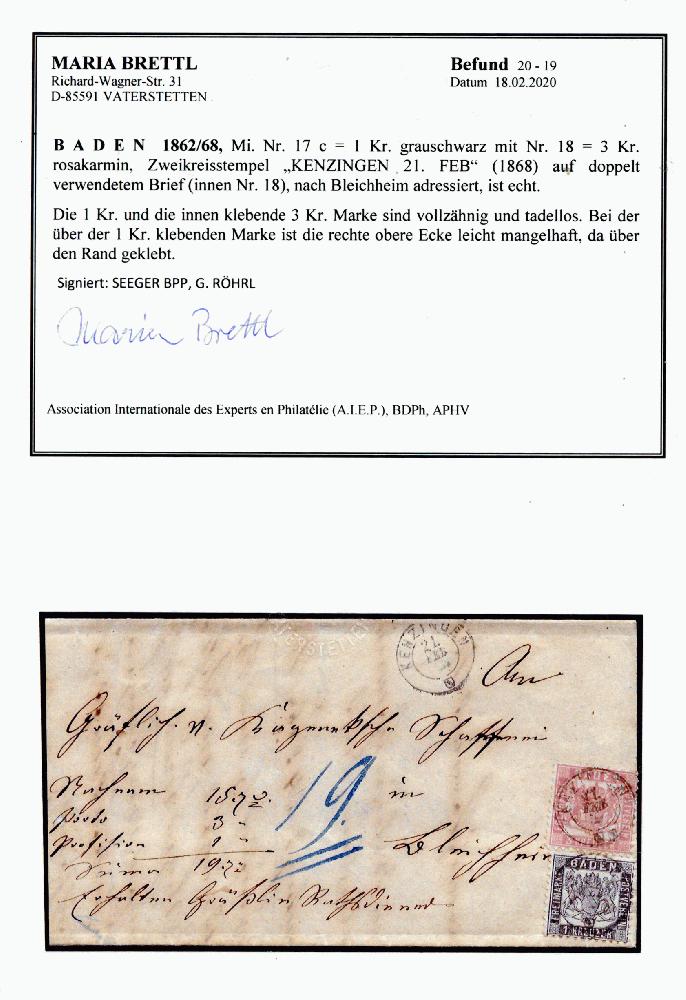 MARIA BRETTL
Richard-Wagner-Str. 31
D-85591 VATERSTETTEN
Befund 20 - 19
Datum 18.02.2020
B A D E N 1862/68, Mi. Nr. 17 c = 1 Kr. grauschwarz mit Nr. 18 = 3 Kr.
rosakarmin, Zweikreisstempel „KENZINGEN 21. FEB“ (1868) auf doppelt
verwendetem Brief (innen Nr. 18), nach Bleichheim adressiert, ist echt.
Die 1 Kr. und die innen klebende 3 Kr. Marke sind vollzähnig und tadellos. Bei der
über der 1 Kr. klebenden Marke ist die rechte obere Ecke leicht mangelhaft, da über
den Rand geklebt.
Signiert: SEEGER BPP, G. RÖHRL
Maria Brettl
Association Internationale des Experts en Philatélie (A.I.E.P.), BDPh, APHV
VATERSTETTEN
KENZINGEN
21.
FEB
An
Gräflich. v. Kageneksche Schaffnei
in
Bleichheim
19.
Porto 3
1
Suma
Erhalten
KENZINGEN
21.
FEB
BADEN
FREIMARKE
POSTVEREIN
1 KREUZER